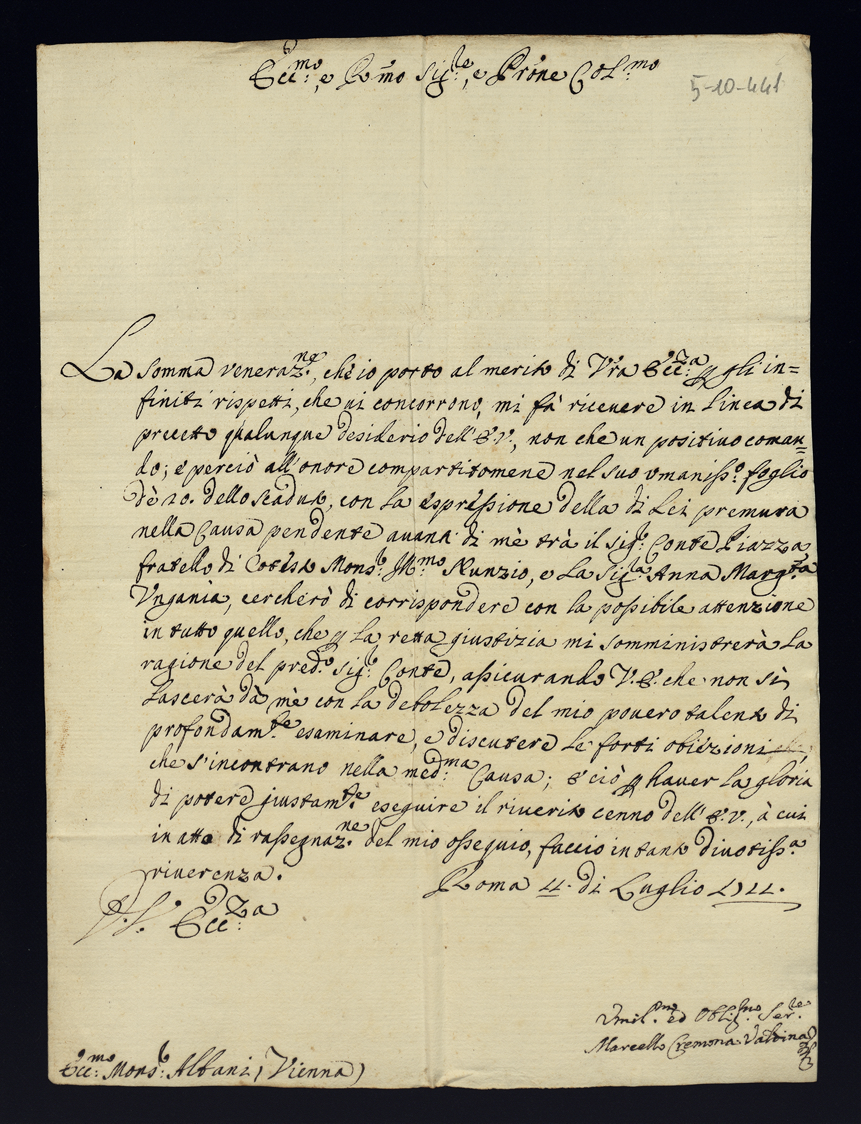 Ecc.mo, e R.mo Sig.re, e Prõne Col.mo
5-10-441
La somma veneraz.ne, che io porto al merito di Vra Ecc.za, p gli in=
finiti rispetti, che ui concorrono, mi fà riceuere in linea di
precetto qualunque desiderio dell'E.V., non che un positiuo coman=
do; e perciò all'onore compartitomene nel suo vmaniss.o foglio
dè 20. dello scaduto, con la espressione della di Lei premura
nella Causa pendente auanti di mè trà il sig.r Conte Piazza
fratello di Cotesto Mons.r Ill.mo Nunzio, e la Sig.ra Anna Marg.ta
Vngania, cercherò di corrispondere con la possibile attenzione
in tutto quello, che p la retta giustizia mi somministrerà la
ragione del pred.o sig.r Conte, assicurando V.E. che non si
lascerà dà mè con la debolezza del mio pouero talento di
profondam.te esaminare, e discutere le forti obiezioni
che s'incontrano nella med.ma Causa; E ciò p hauer la gloria
di potere giustam.te eseguire il riuerito cenno dell'E.V., à cui
in atto di rassegnaz.ne del mio ossequio, faccio intanto diuotiss.a
riuerenza.
Roma 11. di Luglio 1711.
V. Ecc.za
Vmil.mo ed Obl.mo Ser.re
Marcello Cremona Valdina
Ecc.mo Mons.r Albani (Vienna)